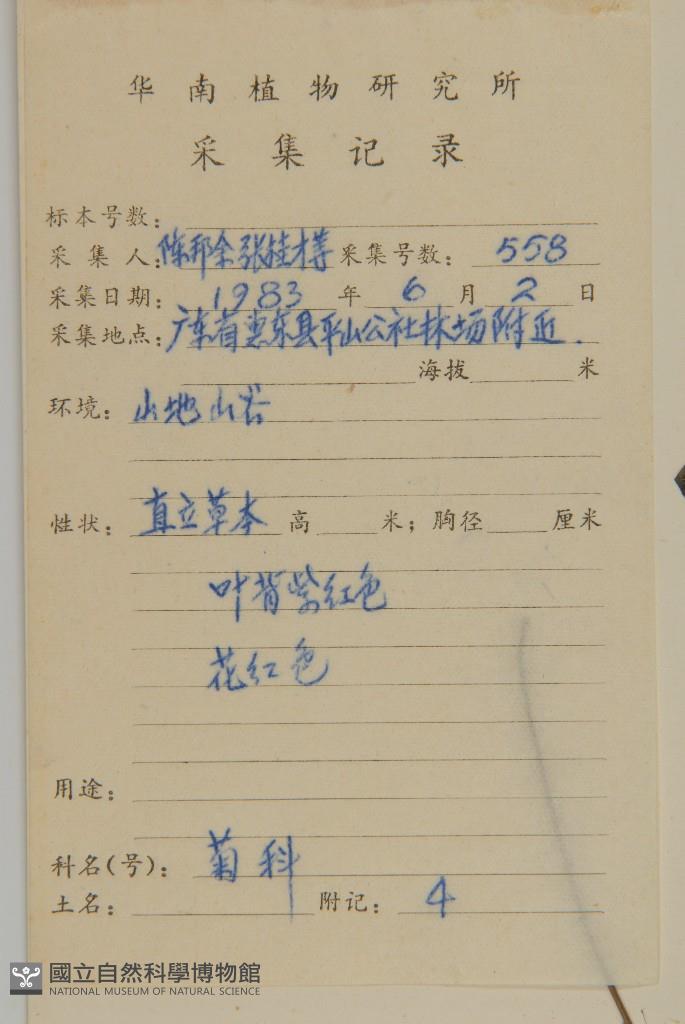 华南植物研究所
采集记录
标本号数:
采集人:陈邦余 张桂才 采集号数: 558
采集日期: 1983 年 6 月 2 日
采集地点: 广东省惠东县平山公社林场附近.
海拔 米
环境: 山地山谷
性状: 直立草本 高 米; 胸径 厘米
叶背紫红色
花红色
用途:
科名(号): 菊科
土名: 附记: 4
國立自然科學博物館
NATIONAL MUSEUM OF NATURAL SCIENCE